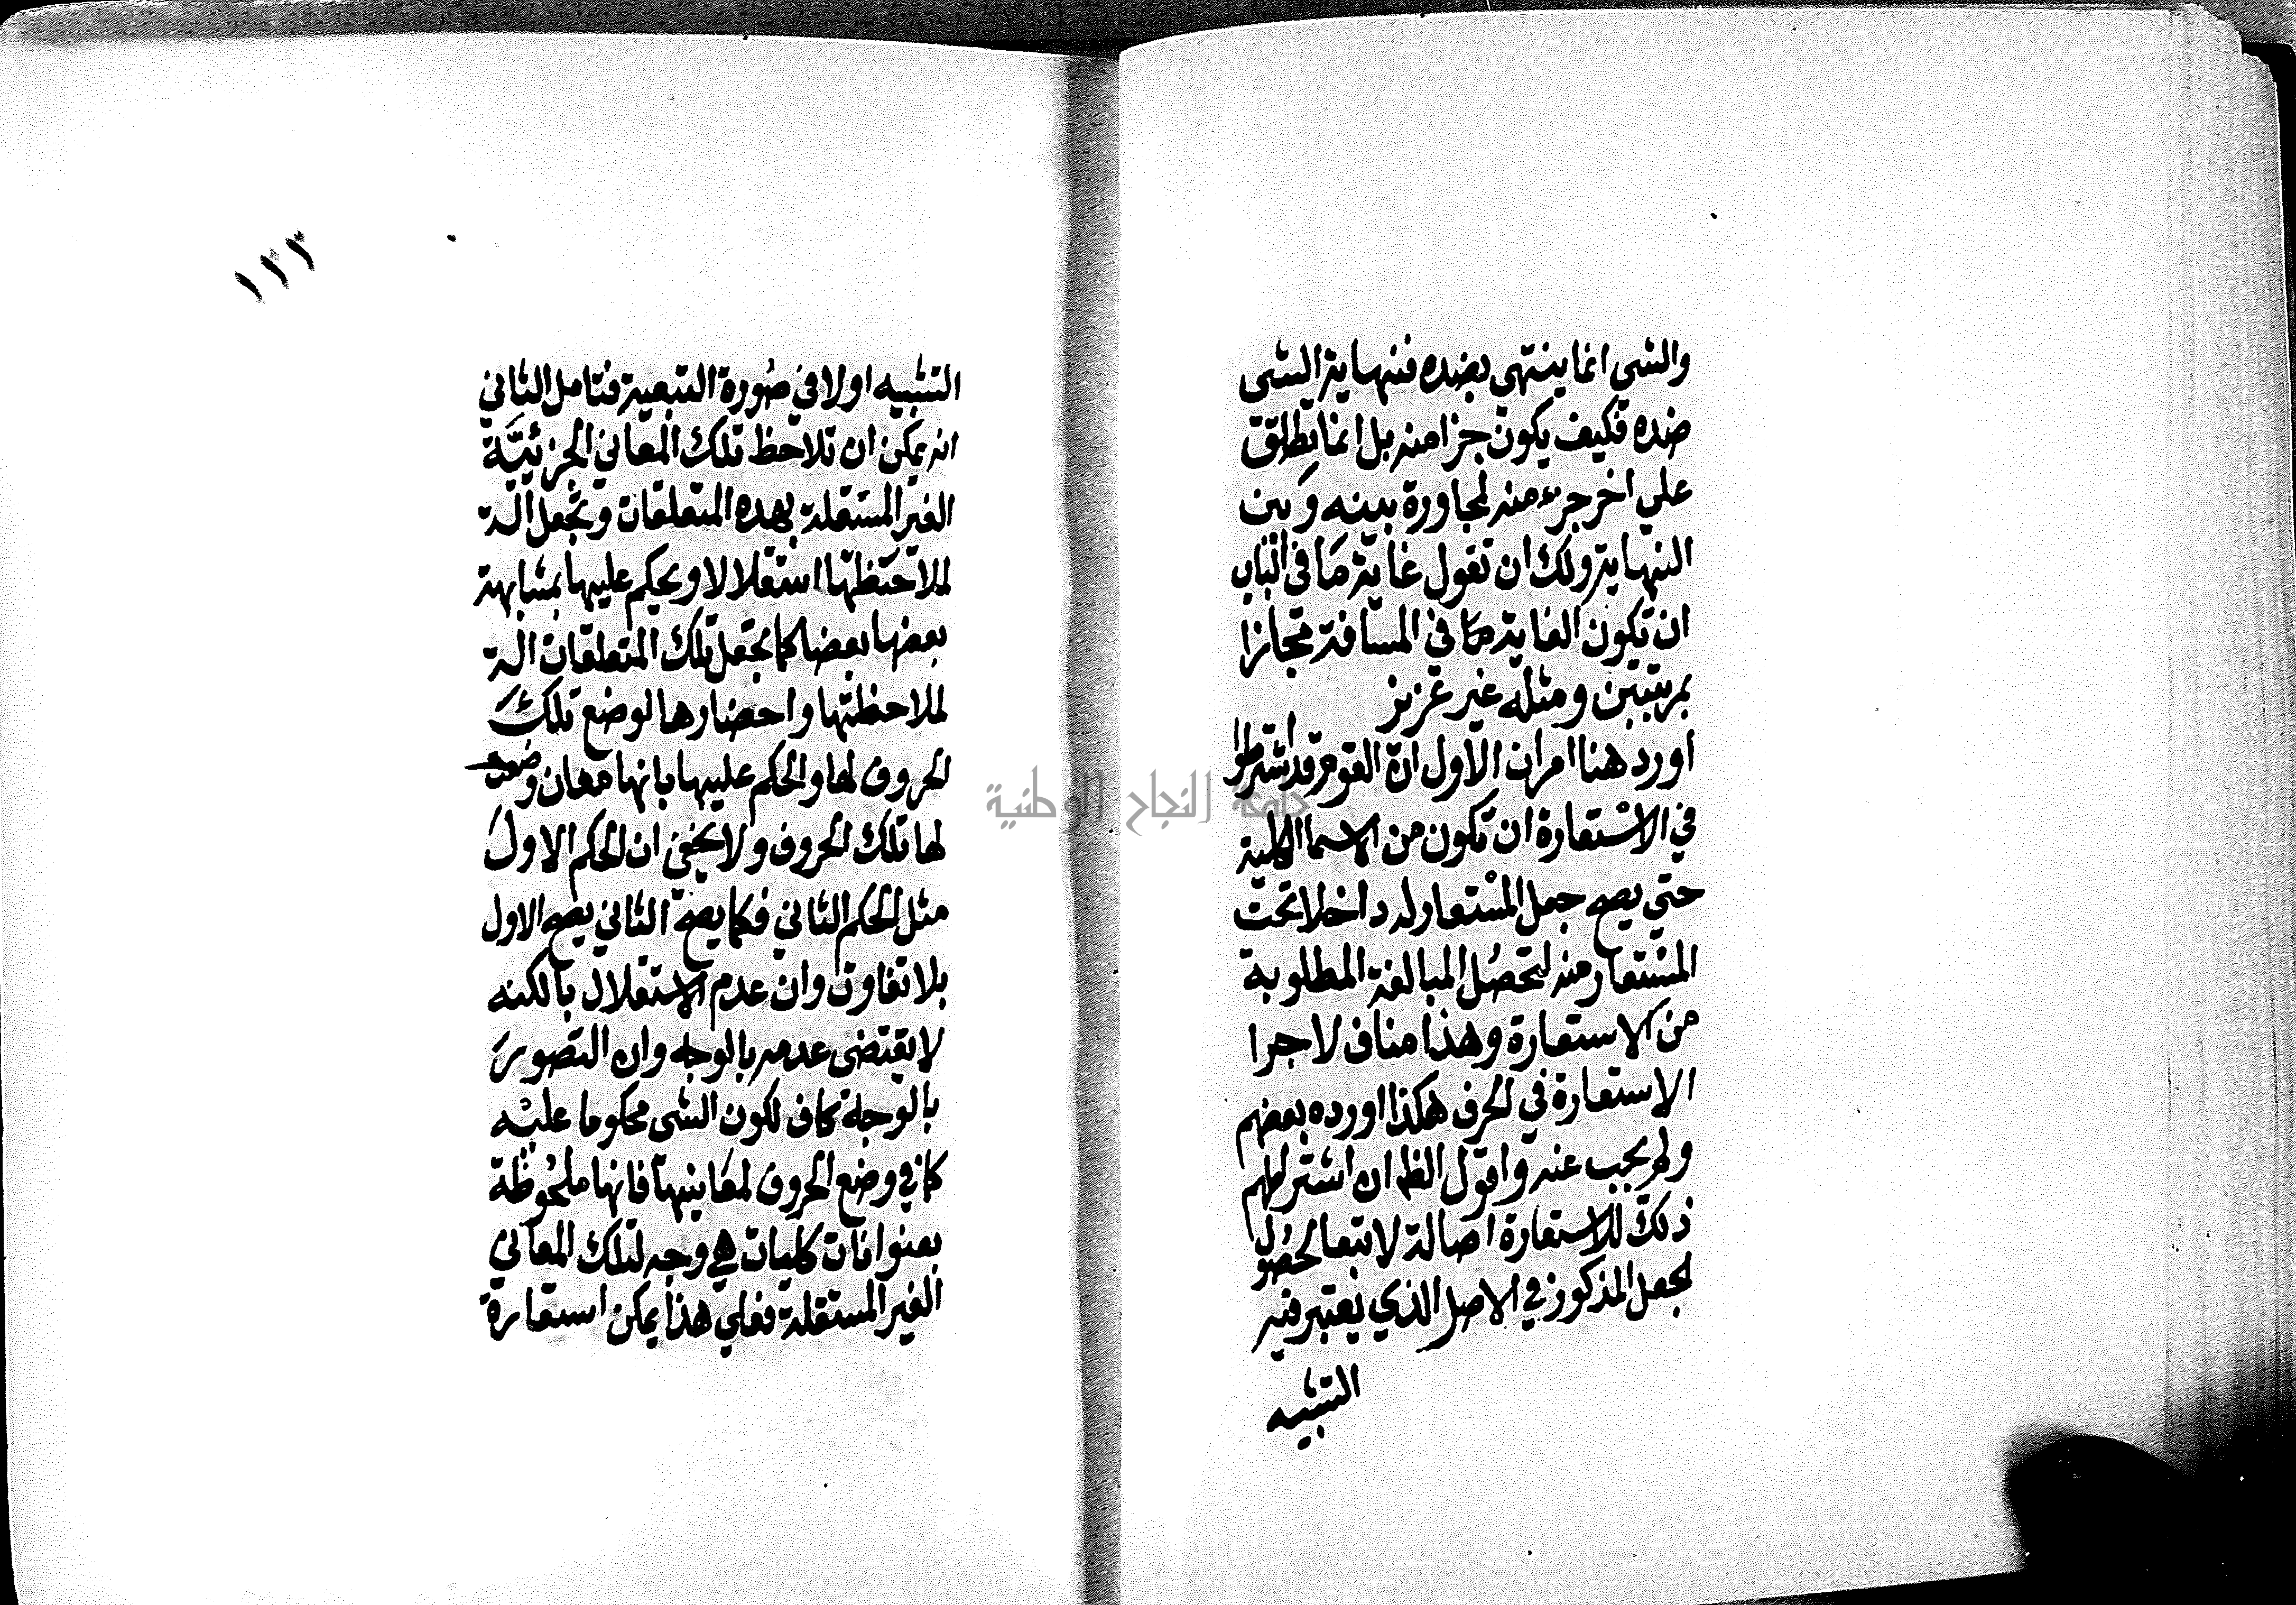 والشي انما ينتهي بضده فنهاية الشي
ضده فكيف يكون جزا منه بل انما تطلق
علي اخر جزء منه لمجاورة بينه وبين
النهاية ولك ان تقول غاية ما في الباب
ان تكون الغاية ما في المسافة مجازا
بمرتبتين ومثله غير عزيز
اورد هنا امران الاول ان القوم قد اشترطوا
في الاستعارة ان تكون من الاسما الكلية
حتي يصح جعل المستعار له داخلا تحت
المستعار منه لتحصل المبالغة المطلوبة
من الاستعارة وهذا مناف لاجرا
الاستعارة في الحرف هكذا اورده بعضهم
ولم يجب عنه واقول الظ ان اشتراطهم
ذلك للاستعارة اصالة لا تبعا لحصول
الجعل المذكور في الاصل الذي يعتبر فيه
التشبيه
١٢٣
التشبيه اولا في صورة التبعية فتامل الثاني
انه يمكن ان تلاحظ تلك المعاني الجزئية
الغير المستقلة بهذه المتعلقات وتجعل الة
لملاحظتها استقلالا ويحكم عليها بمشابهة
بعضها بعضا كما تجعل تلك المتعلقات الة
لملاحظتها واحضارها لوضع تلك
الحروف لها والحكم عليها بانها معان وضعت
لها تلك الحروف ولا يخفى ان الحكم الاول
مثل الحكم الثاني فكما يصح الثاني يصح الاول
بلا تفاوت وان عدم الاستقلال بالكنه
لا يقتضي عدمه بالوجه وان التصور
بالوجه كاف لكون الشي محكوما عليه
كما في وضع الحروف لمعانيها فانها ملحوظة
بعنوانات كليات هي وجه لتلك المعاني
الغير المستقلة فعلي هذا يمكن استعارة
جامعة النجاح الوطنية